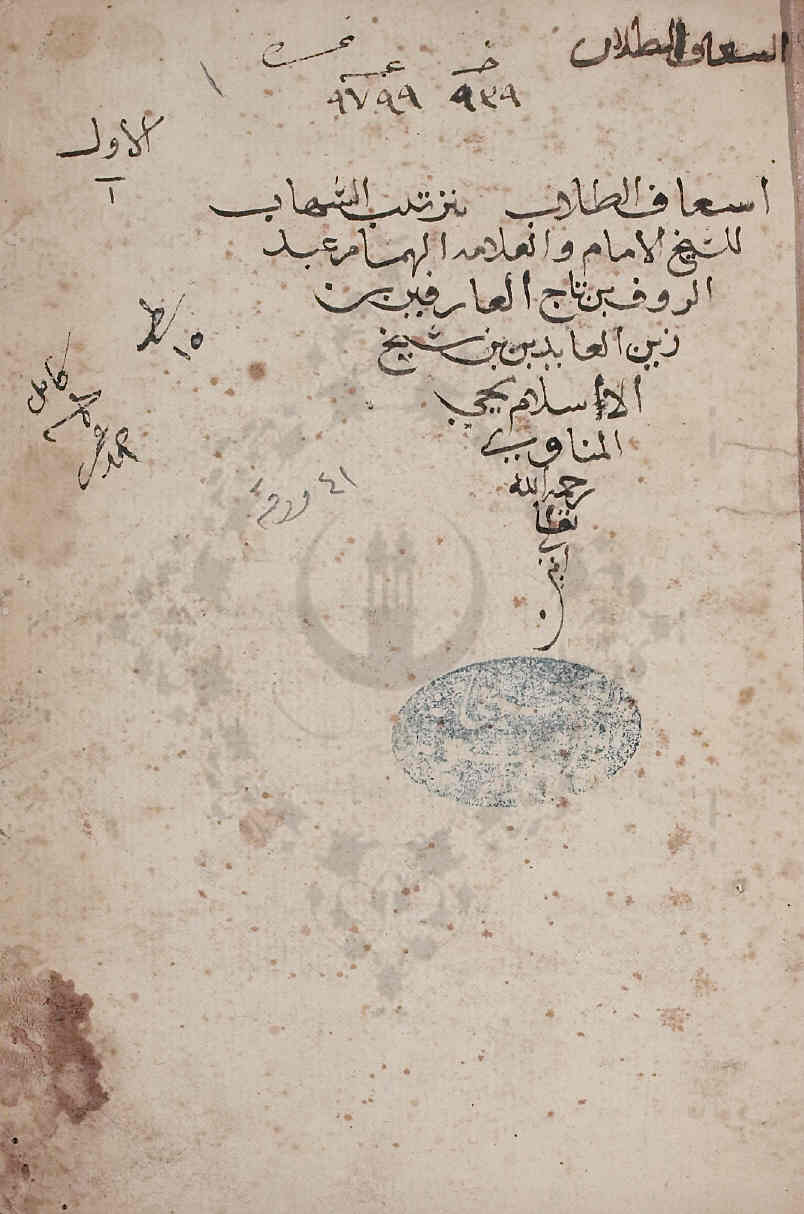 اسعاف الطلاب
نمرة
خـ ٩٣٩ عـ ٩٧٩٩ ١
الاول
١
اسعاف الطلاب بترتيب الشهاب
للشيخ الامام والعلامه الهمام عبد
الروف بن تاج العارفين بن
زين العابدين بن شيخ
الاسلام يحيى
المناوى
رحمه الله
تعالى
امين
سطر
١٥
كامل
٤١ ورقة